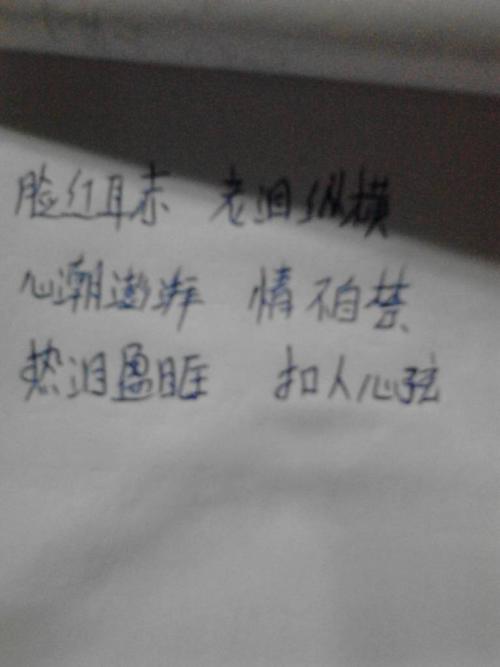 脸红耳赤 老泪纵横
心潮澎湃 情不自禁
热泪盈眶 扣人心弦